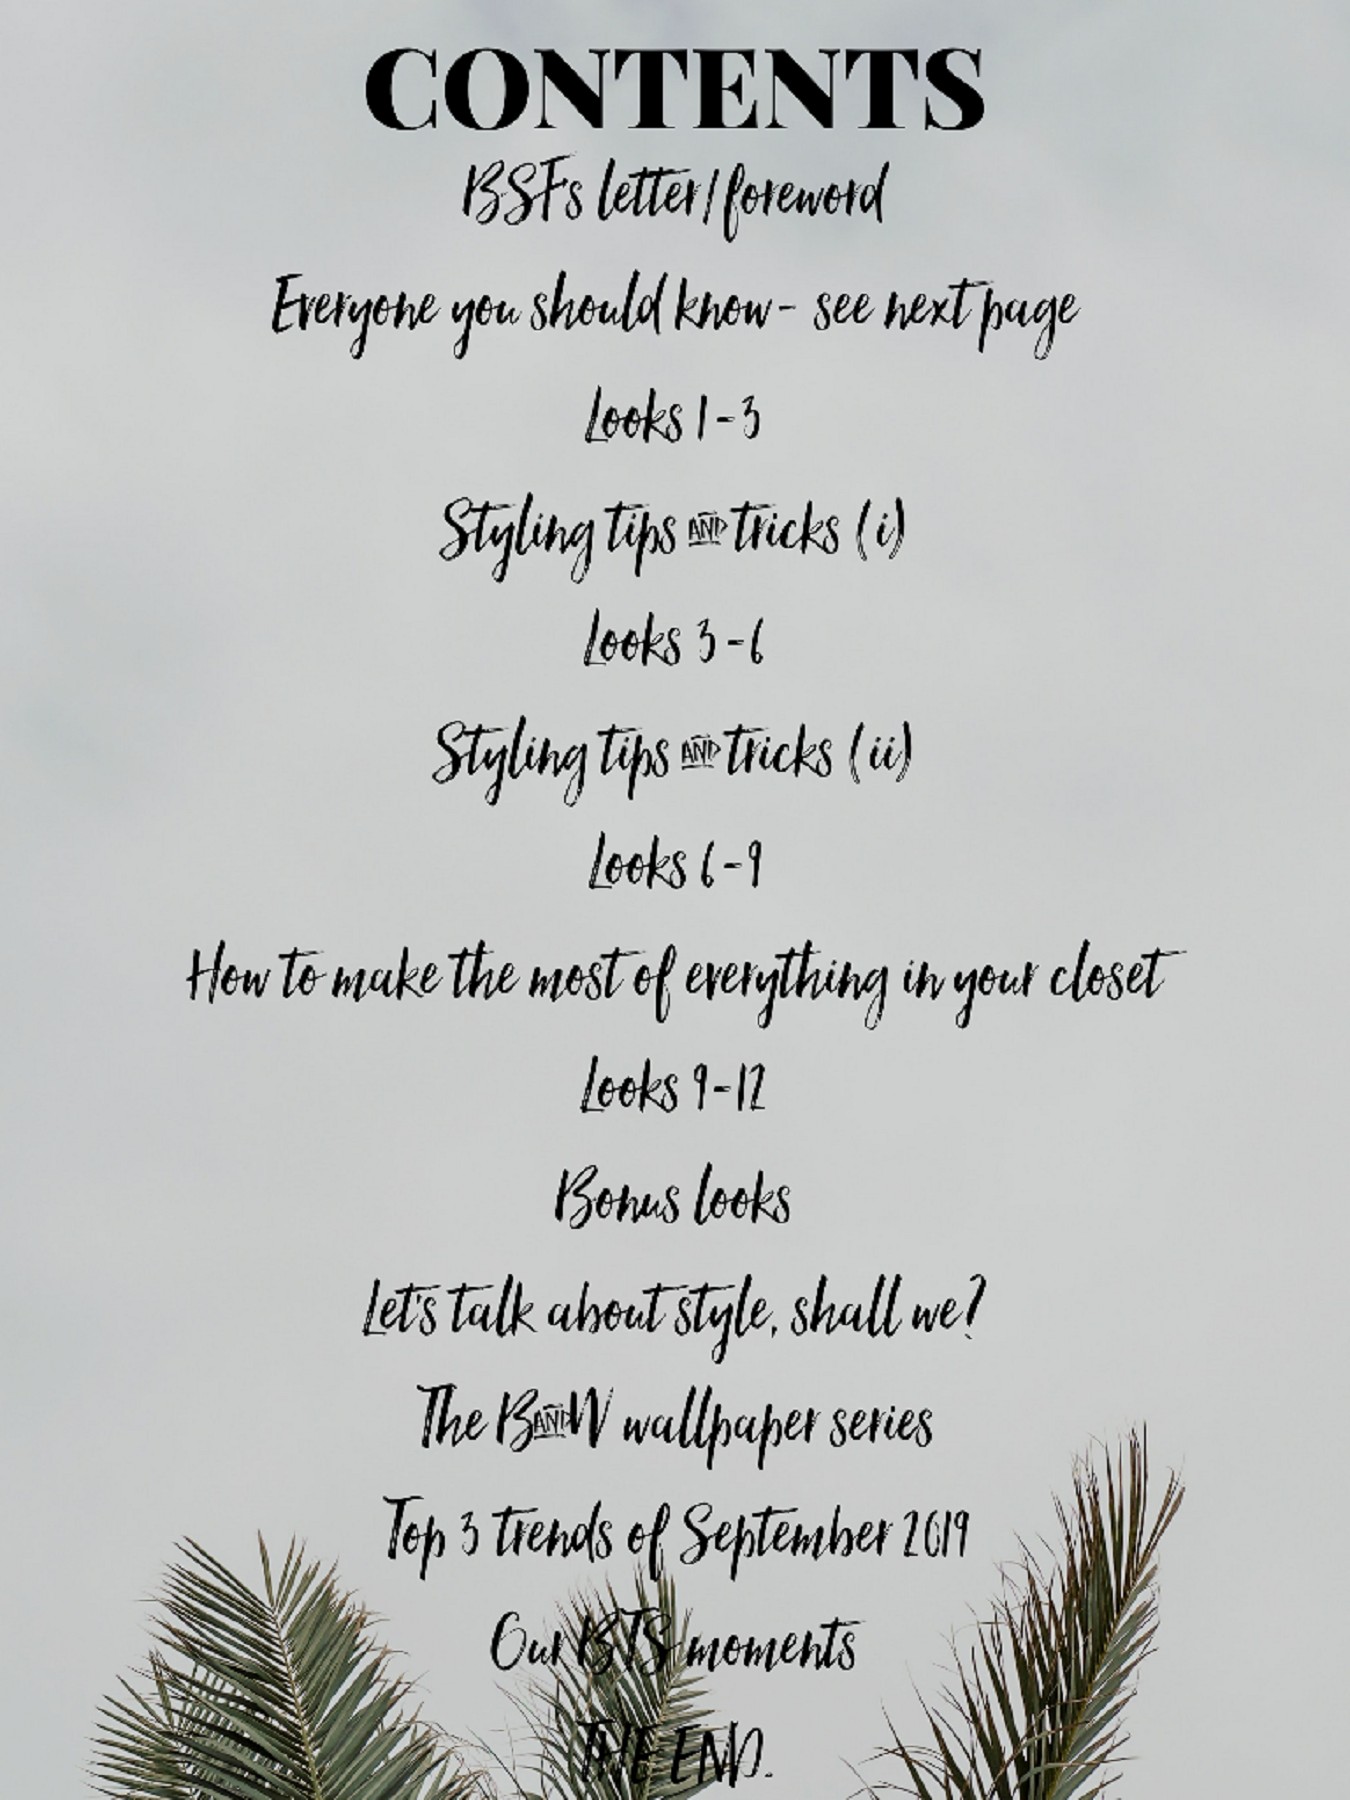 CONTENTS
BSF's letter/foreword
Everyone you should know- see next page
Looks 1-3
Styling tips & tricks (i)
Looks 3-6
Styling tips & tricks (ii)
Looks 6-9
How to make the most of everything in your closet
Looks 9-12
Bonus looks
Let's talk about style, shall we?
The B&W wallpaper series
Top 3 trends of September 2019
Our BTS moments
THE END.